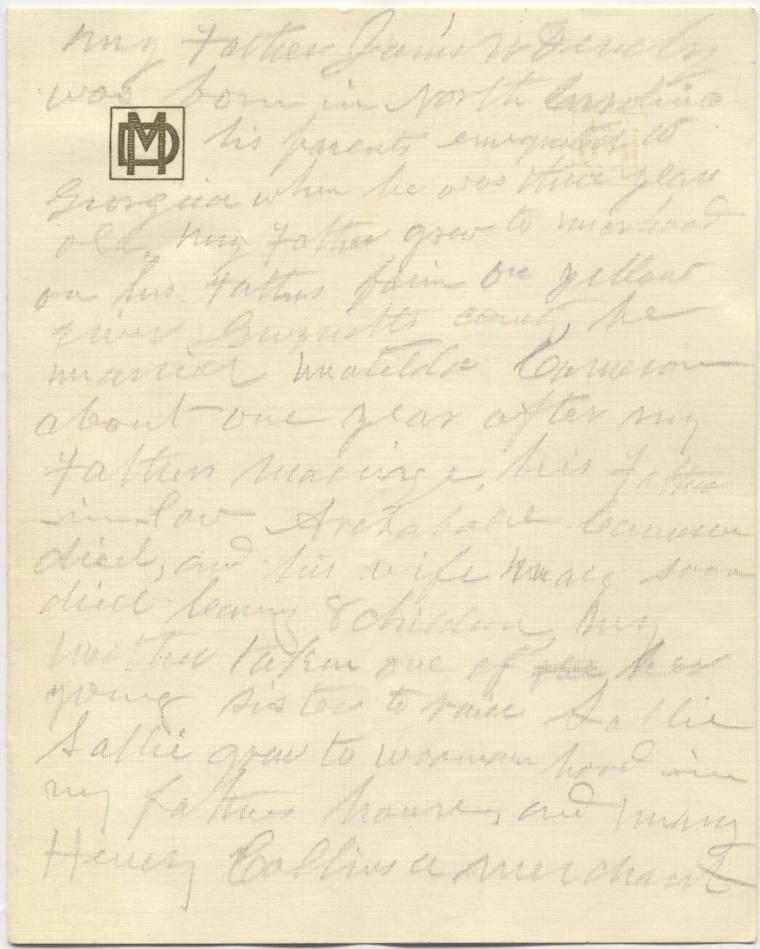 my Father James N Dendy
was born in North Carolina
MD his parents emigrated to
Georgia when he was three years
old, my Father grew to manhood
on his Fathers farm on yellow
river Gwinetts county, he
married Matilda Cameron
about one year after my
Fathers marirge, his Father
in-law Archabald Cameron
died, and his wife Mary soon
died leaving 8 children, my
Mother taken one of her
young sister to raise Sallie
Sallie grew to wooman hood in
my fathers house, and
Henry Collins a merchant